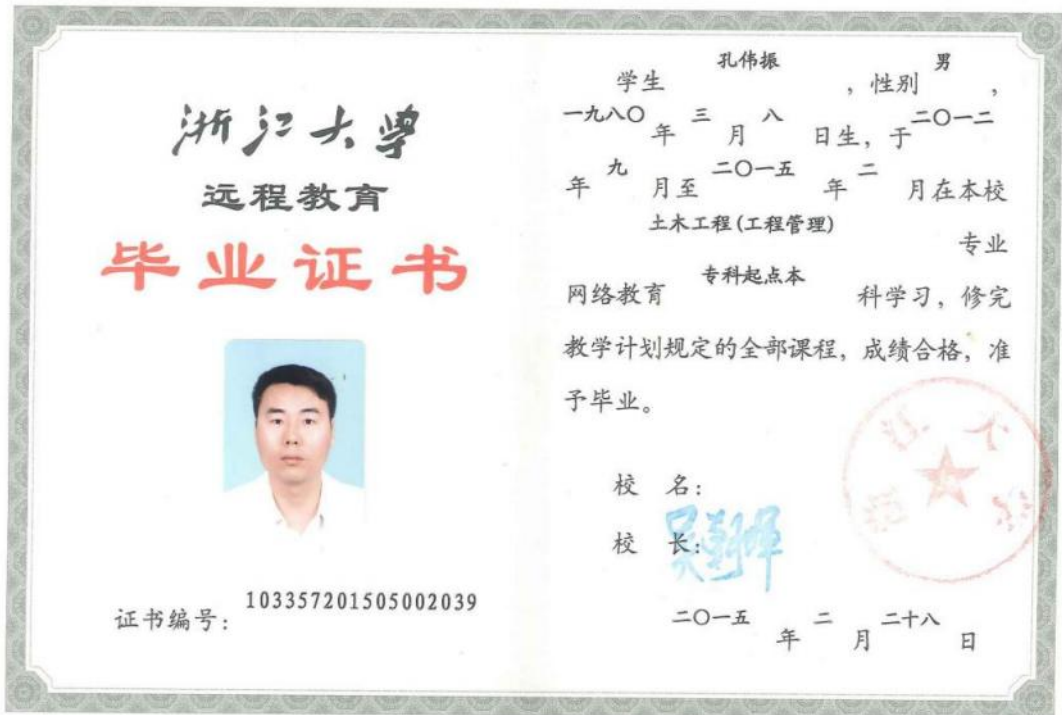 浙江大学
远程教育
毕业证书
证书编号：103357201505002039
学生 孔伟振 ，性别 男 ，
一九八〇年三月八日生，于二〇一二
年九月至二〇一五年二月在本校
土木工程(工程管理) 专业
网络教育 专科起点本 科学习，修完
教学计划规定的全部课程，成绩合格，准
予毕业。
校 名：
校 长：吴朝晖
二〇一五年二月二十八日
浙江大学